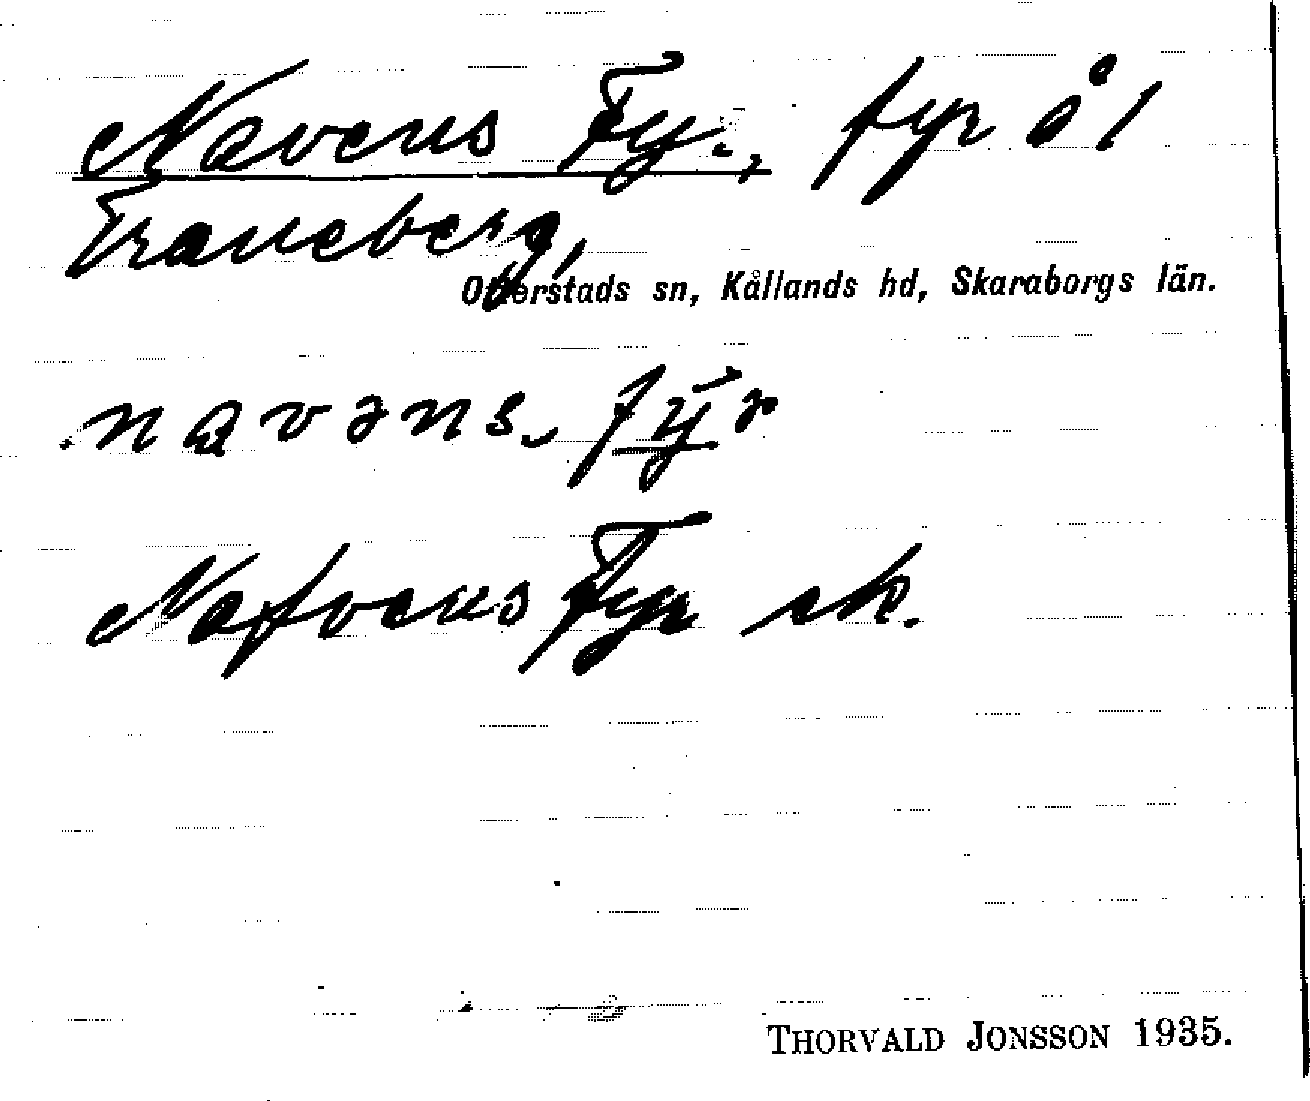 Navens Fyr, fyr å 1
Traneberg,
Otterstads sn, Kållands hd, Skaraborgs län.
navəns fy̅r
Nafvens Fyr ek.
THORVALD JONSSON 1935.